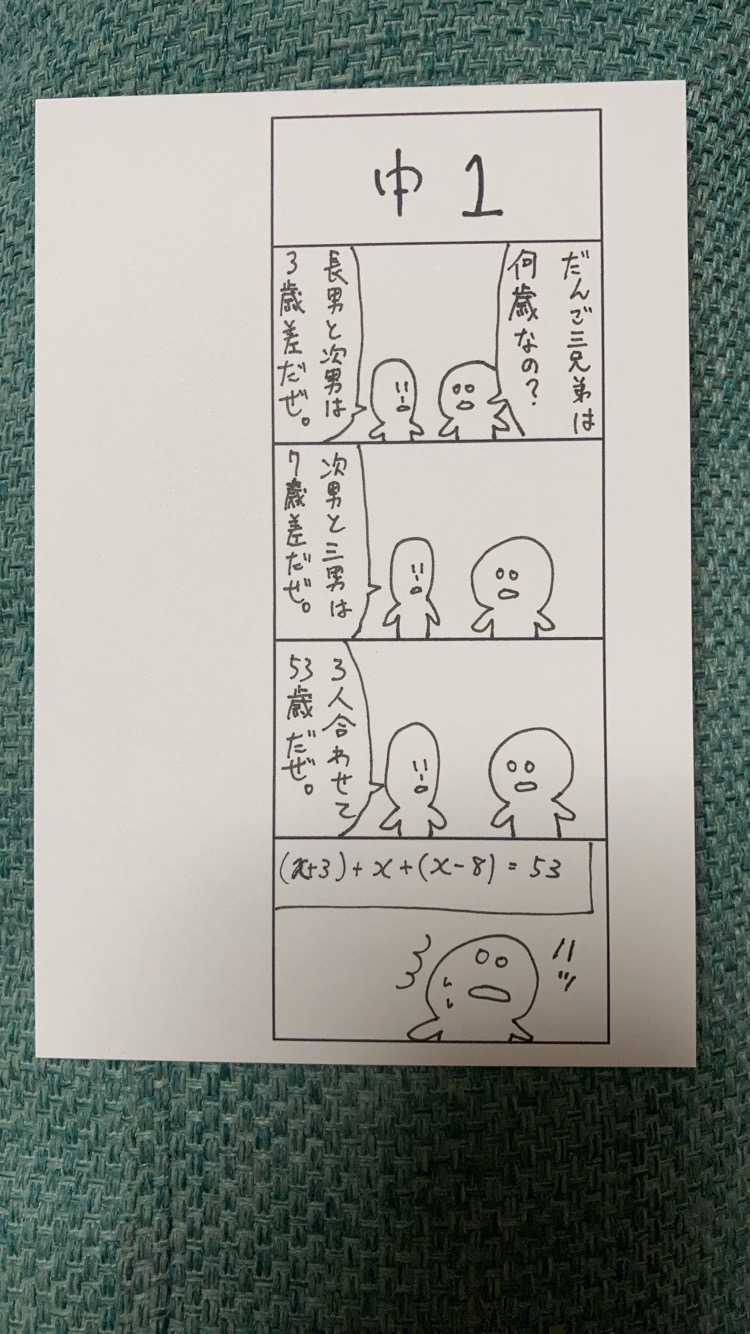 中1
だんご三兄弟は
何歳なの?
長男と次男は
3歳差だぜ。
次男と三男は
7歳差だぜ。
3人合わせて
53歳だぜ。
(x+3)+x+(x-8)=53
ハッ